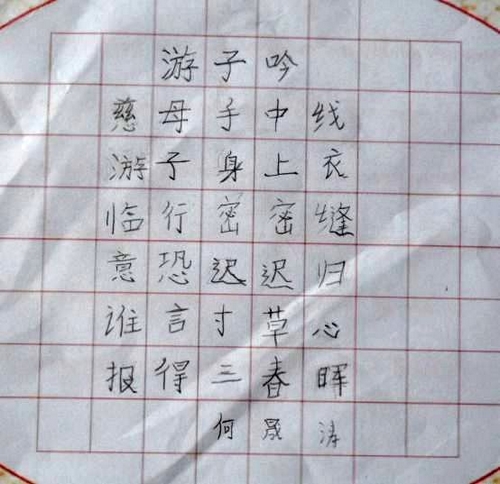 游子吟
慈母手中线
游子身上衣
临行密密缝
意恐迟迟归
谁言寸草心
报得三春晖
何晟涛